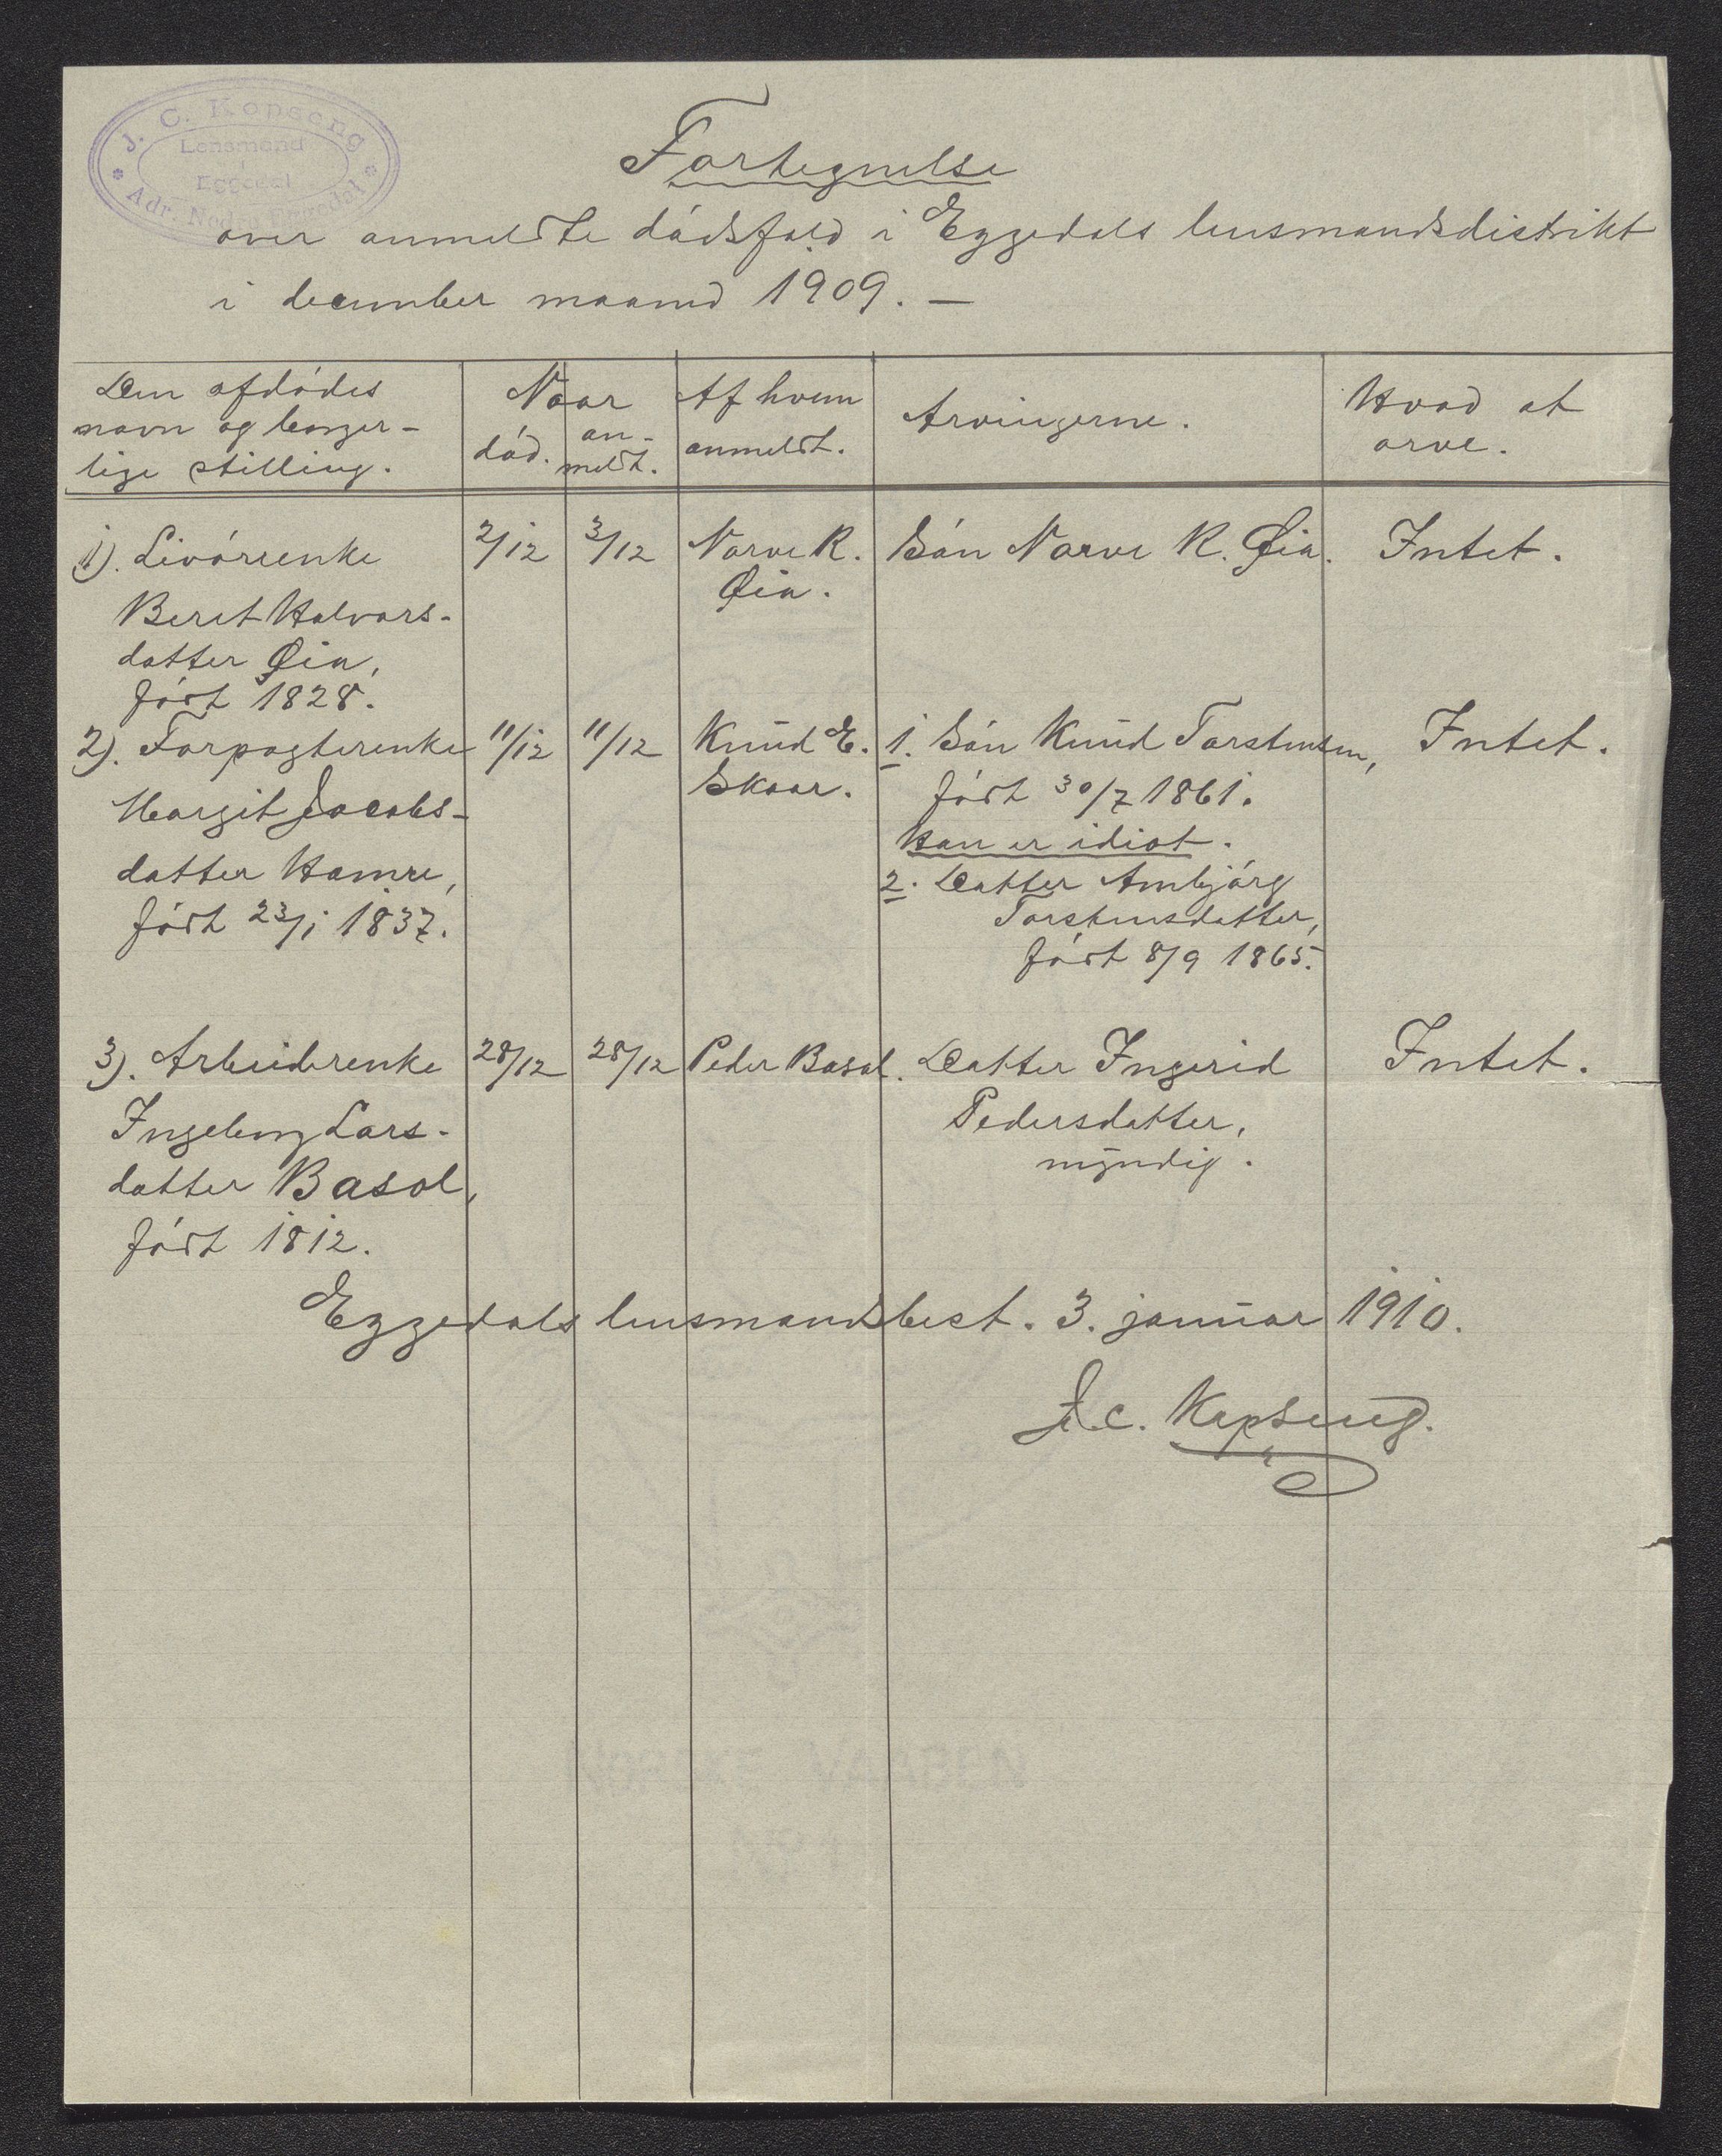 J. C. Kopseng
Lensmand
i
Eggedal
Adr. Nedre Eggedal
Fortegnelse
over anmeldte dødsfald i Eggedals lensmandsdistrikt
i december maaned 1909. —
Den afdødes
navn og borger-
lige stilling.
Naar
død.
an-
meldt.
Af hvem
anmeldt.
Arvingerne.
Hvad at
arve.
1). Livørenke
Berit Halvors-
datter Øia,
født 1828.
2/12
3/12
Narve R.
Øia.
Søn Narve R. Øia.
Intet.
2). Forpagterenke
Margit Jacobs-
datter Hamre,
født 23/1 1837.
11/12
11/12
Knud E.
Skaar.
1. Søn Knud Torstensen,
født 30/7 1861.
Han er idiot.
2. Datter Ambjørg
Torstensdatter,
født 8/9 1865.
Intet.
3). Arbeiderenke
Ingeborg Lars-
datter Basol,
født 1812.
28/12
28/12
Peder Basol.
Datter Ingerid
Pedersdatter,
myndig.
Intet.
Eggedals lensmandsbest. 3. januar 1910.
J. C. Kopseng.